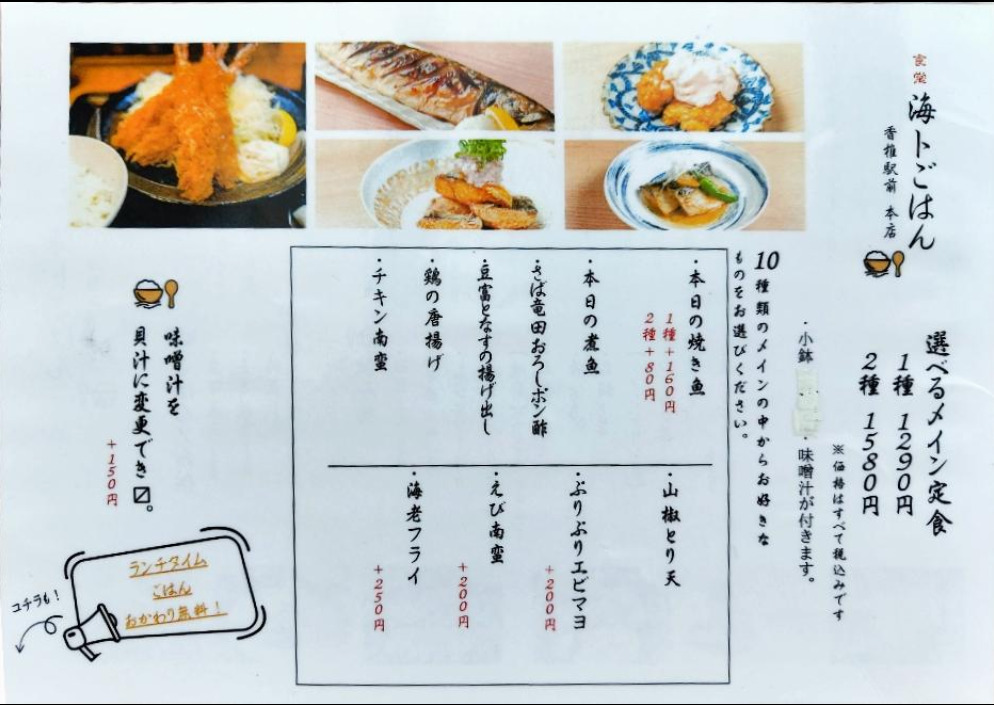 食堂
海トごはん
香椎駅前 本店
選べるメイン定食
1種 1290円
2種 1580円
※価格はすべて税込みです
・小鉢
・味噌汁が付きます。
10種類のメインの中からお好きな
ものをお選びください。
・本日の焼き魚
1種+160円
2種+80円
・本日の煮魚
・さば竜田おろしポン酢
・豆富となすの揚げ出し
・鶏の唐揚げ
・チキン南蛮
・山椒とり天
・ぷりぷりエビマヨ
+200円
・えび南蛮
+200円
・海老フライ
+250円
味噌汁を
貝汁に変更でき〼。
+150円
ランチタイム
ごはん
おかわり無料!
コチラも!